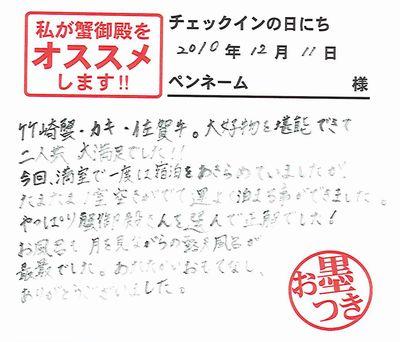 私が蟹御殿を
オススメ
します!!
チェックインの日にち
2010年12月11日
ペンネーム 様
竹崎蟹・カキ・佐賀牛。大好物を堪能できて
二人共 大満足でした!!
今回、満室で一度は宿泊をあきらめていましたが、
たまたま1室空きがでて運よく泊まる事ができました。
やっぱり蟹御殿さんを選んで正解でした!
お風呂も月を見ながらの露天風呂が
最高でした。あたたかいおもてなし、
ありがとうございました。
お墨つき